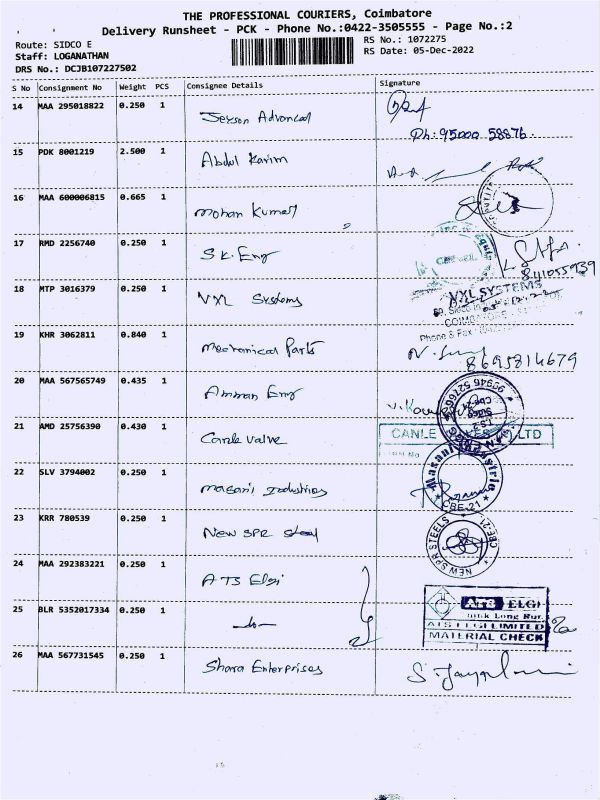 THE PROFESSIONAL COURIERS, Coimbatore
Delivery Runsheet - PCK - Phone No.:0422-3505555 - Page No.:2
Route: SIDCO E
RS No.: 1072275
Staff: LOGANATHAN
RS Date: 05-Dec-2022
DRS No.: DCJB107227502
S No Consignment No Weight PCS Consignee Details Signature
14 MAA 295018822 0.250 1 Jexson Advanced
Ph: 95000 58876
15 PDK 8001219 2.500 1 Abdul Karim
16 MAA 600006815 0.665 1 Mohan Kumar
17 RMD 2256740 0.250 1 S.K. Eng
18 MTP 3016379 0.250 1 VXL Systems
VXL SYSTEMS
COIMBATORE
Phone & Fax
19 KHR 3062811 0.840 1 Mechanical Parts
8695814679
20 MAA 567565749 0.435 1 Amman Eng
21 AMD 25756390 0.430 1 Canle valve
CANLE LTD
22 SLV 3794002 0.250 1 Masani Industries
CBE-21
23 KRR 780539 0.250 1 New SPR Steel
NEW SPR STEELS CBE-21
24 MAA 292383221 0.250 1 ATS Elgi
ATS ELGI
25 BLR 5352017334 0.250 1
ATS ELGI LIMITED
MATERIAL CHECK
26 MAA 567731545 0.250 1 Shara Enterprises